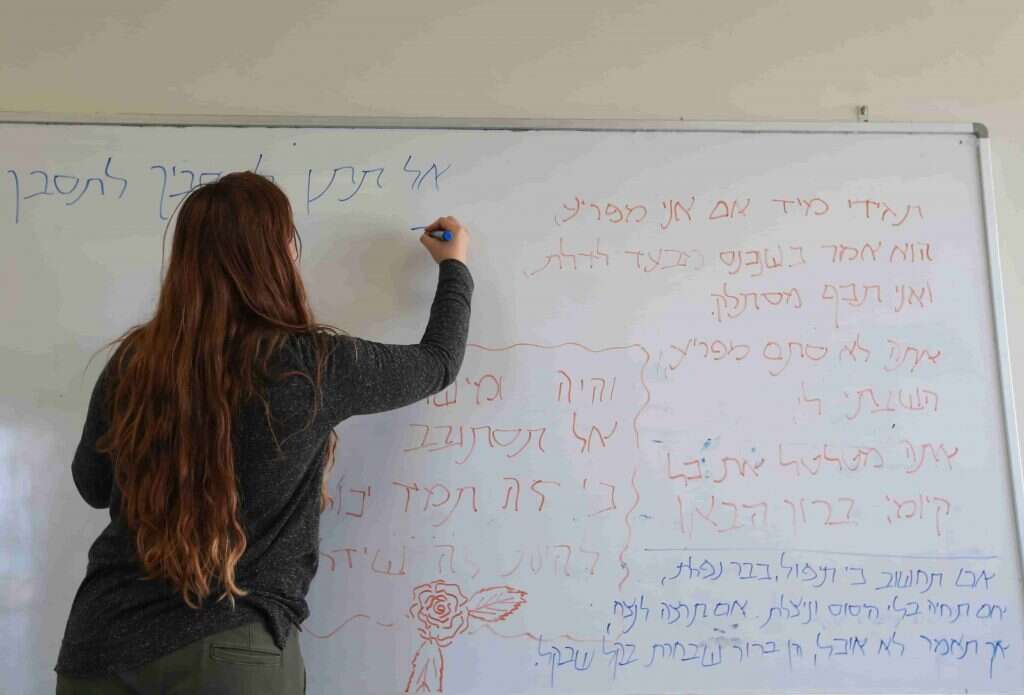 אל תתן לתסבך
תגידי מיד אם אני מפריע,
הוא אמר כשנכנס מבעד לדלת,
ואני תכף מסתלק.
אתה לא סתם מפריע,
השבתי לו,
אתה מטלטל את כל
קיומי. ברוך הבא
והיה
אל תסתובב
כי זה תמיד
זה
אם תחשוב כי תיפול, כבר נפלת,
אם תהיה בלי היסוס וניצלת. אם תרצה לנצח,
אך תאמר לא אוכל, הן ברור שבחרת בקל שבקל.